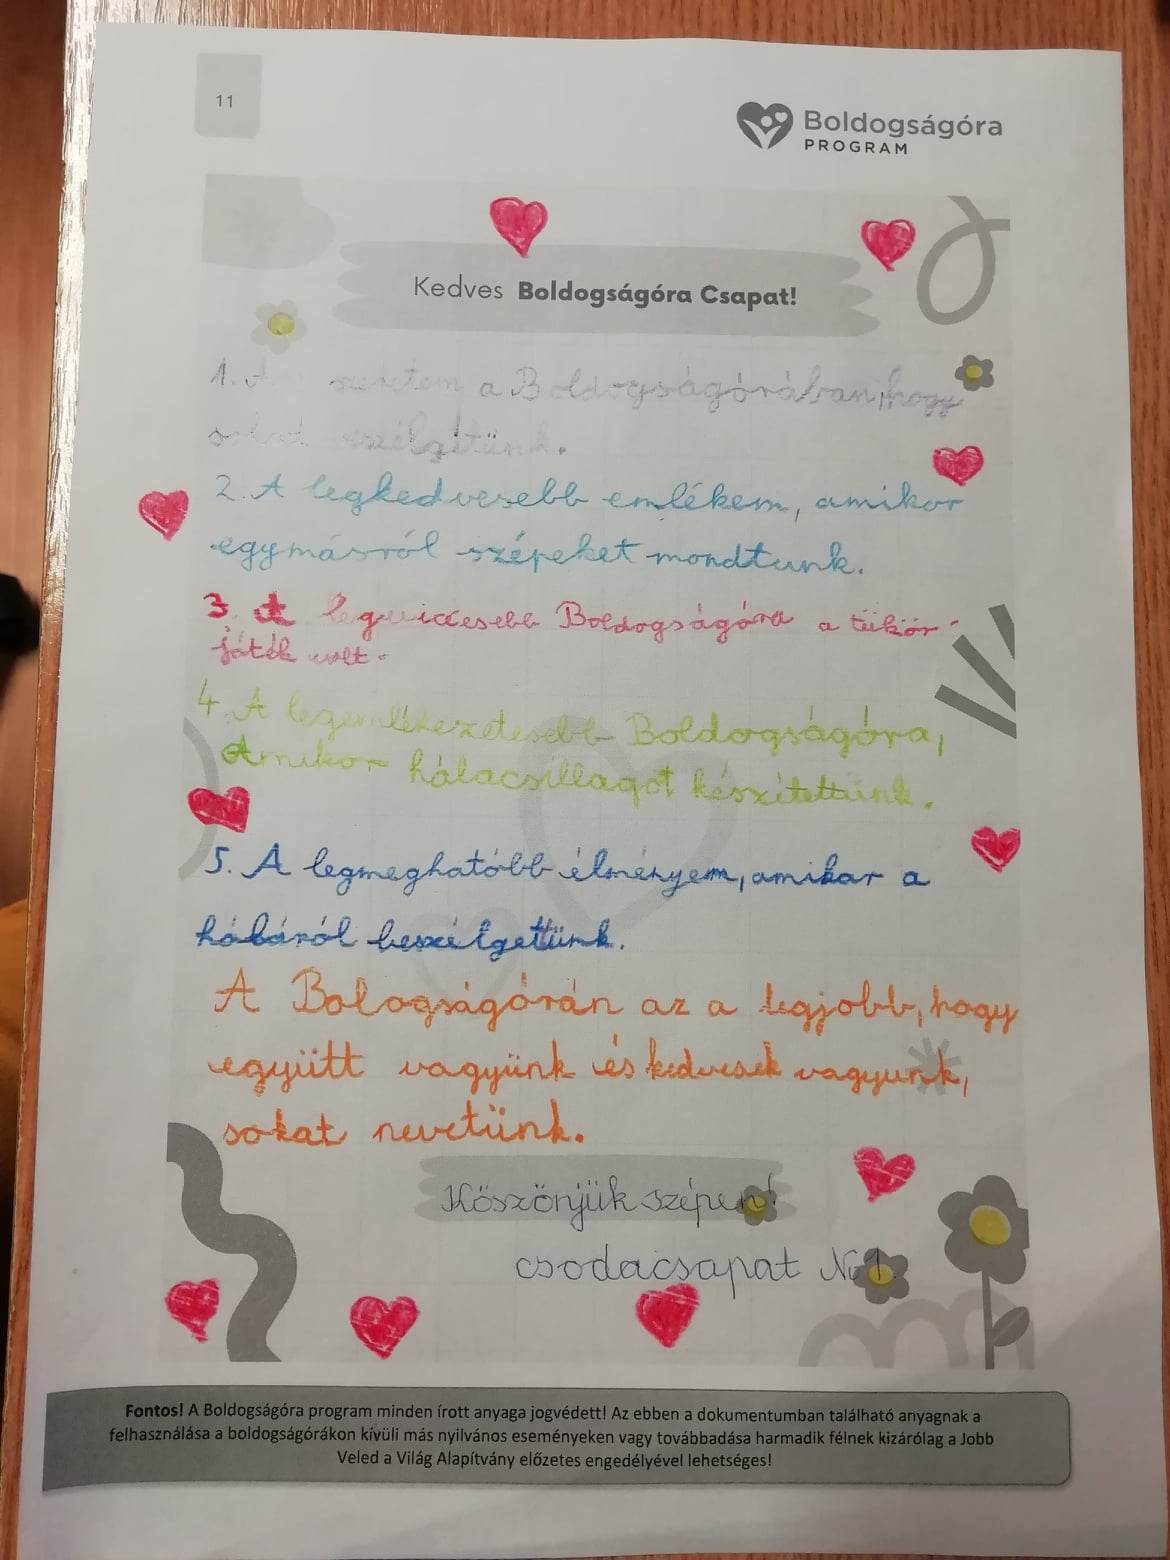 11
Boldogságóra
PROGRAM
Kedves Boldogságóra Csapat!
1. A szeretem a Boldogságórában, hogy
sokat beszélgetünk.
2. A legkedvesebb emlékem, amikor
egymásról szépeket mondtunk.
3. A legviccesebb Boldogságóra a tükör-
játék volt.
4. A legemlékezetesebb Boldogságóra,
Amikor hálacsillagot készítettünk.
5. A legmeghatóbb élményem, amikor a
háláról beszélgettünk.
A Bologságórán az a legjobb, hogy
együtt vagyünk és kedvesek vagyunk,
sokat nevetünk.
Köszönjük szépen!
csodacsapat No 1.
Fontos! A Boldogságóra program minden írott anyaga jogvédett! Az ebben a dokumentumban található anyagnak a
felhasználása a boldogságórákon kívüli más nyilvános eseményeken vagy továbbadása harmadik félnek kizárólag a Jobb
Veled a Világ Alapítvány előzetes engedélyével lehetséges!